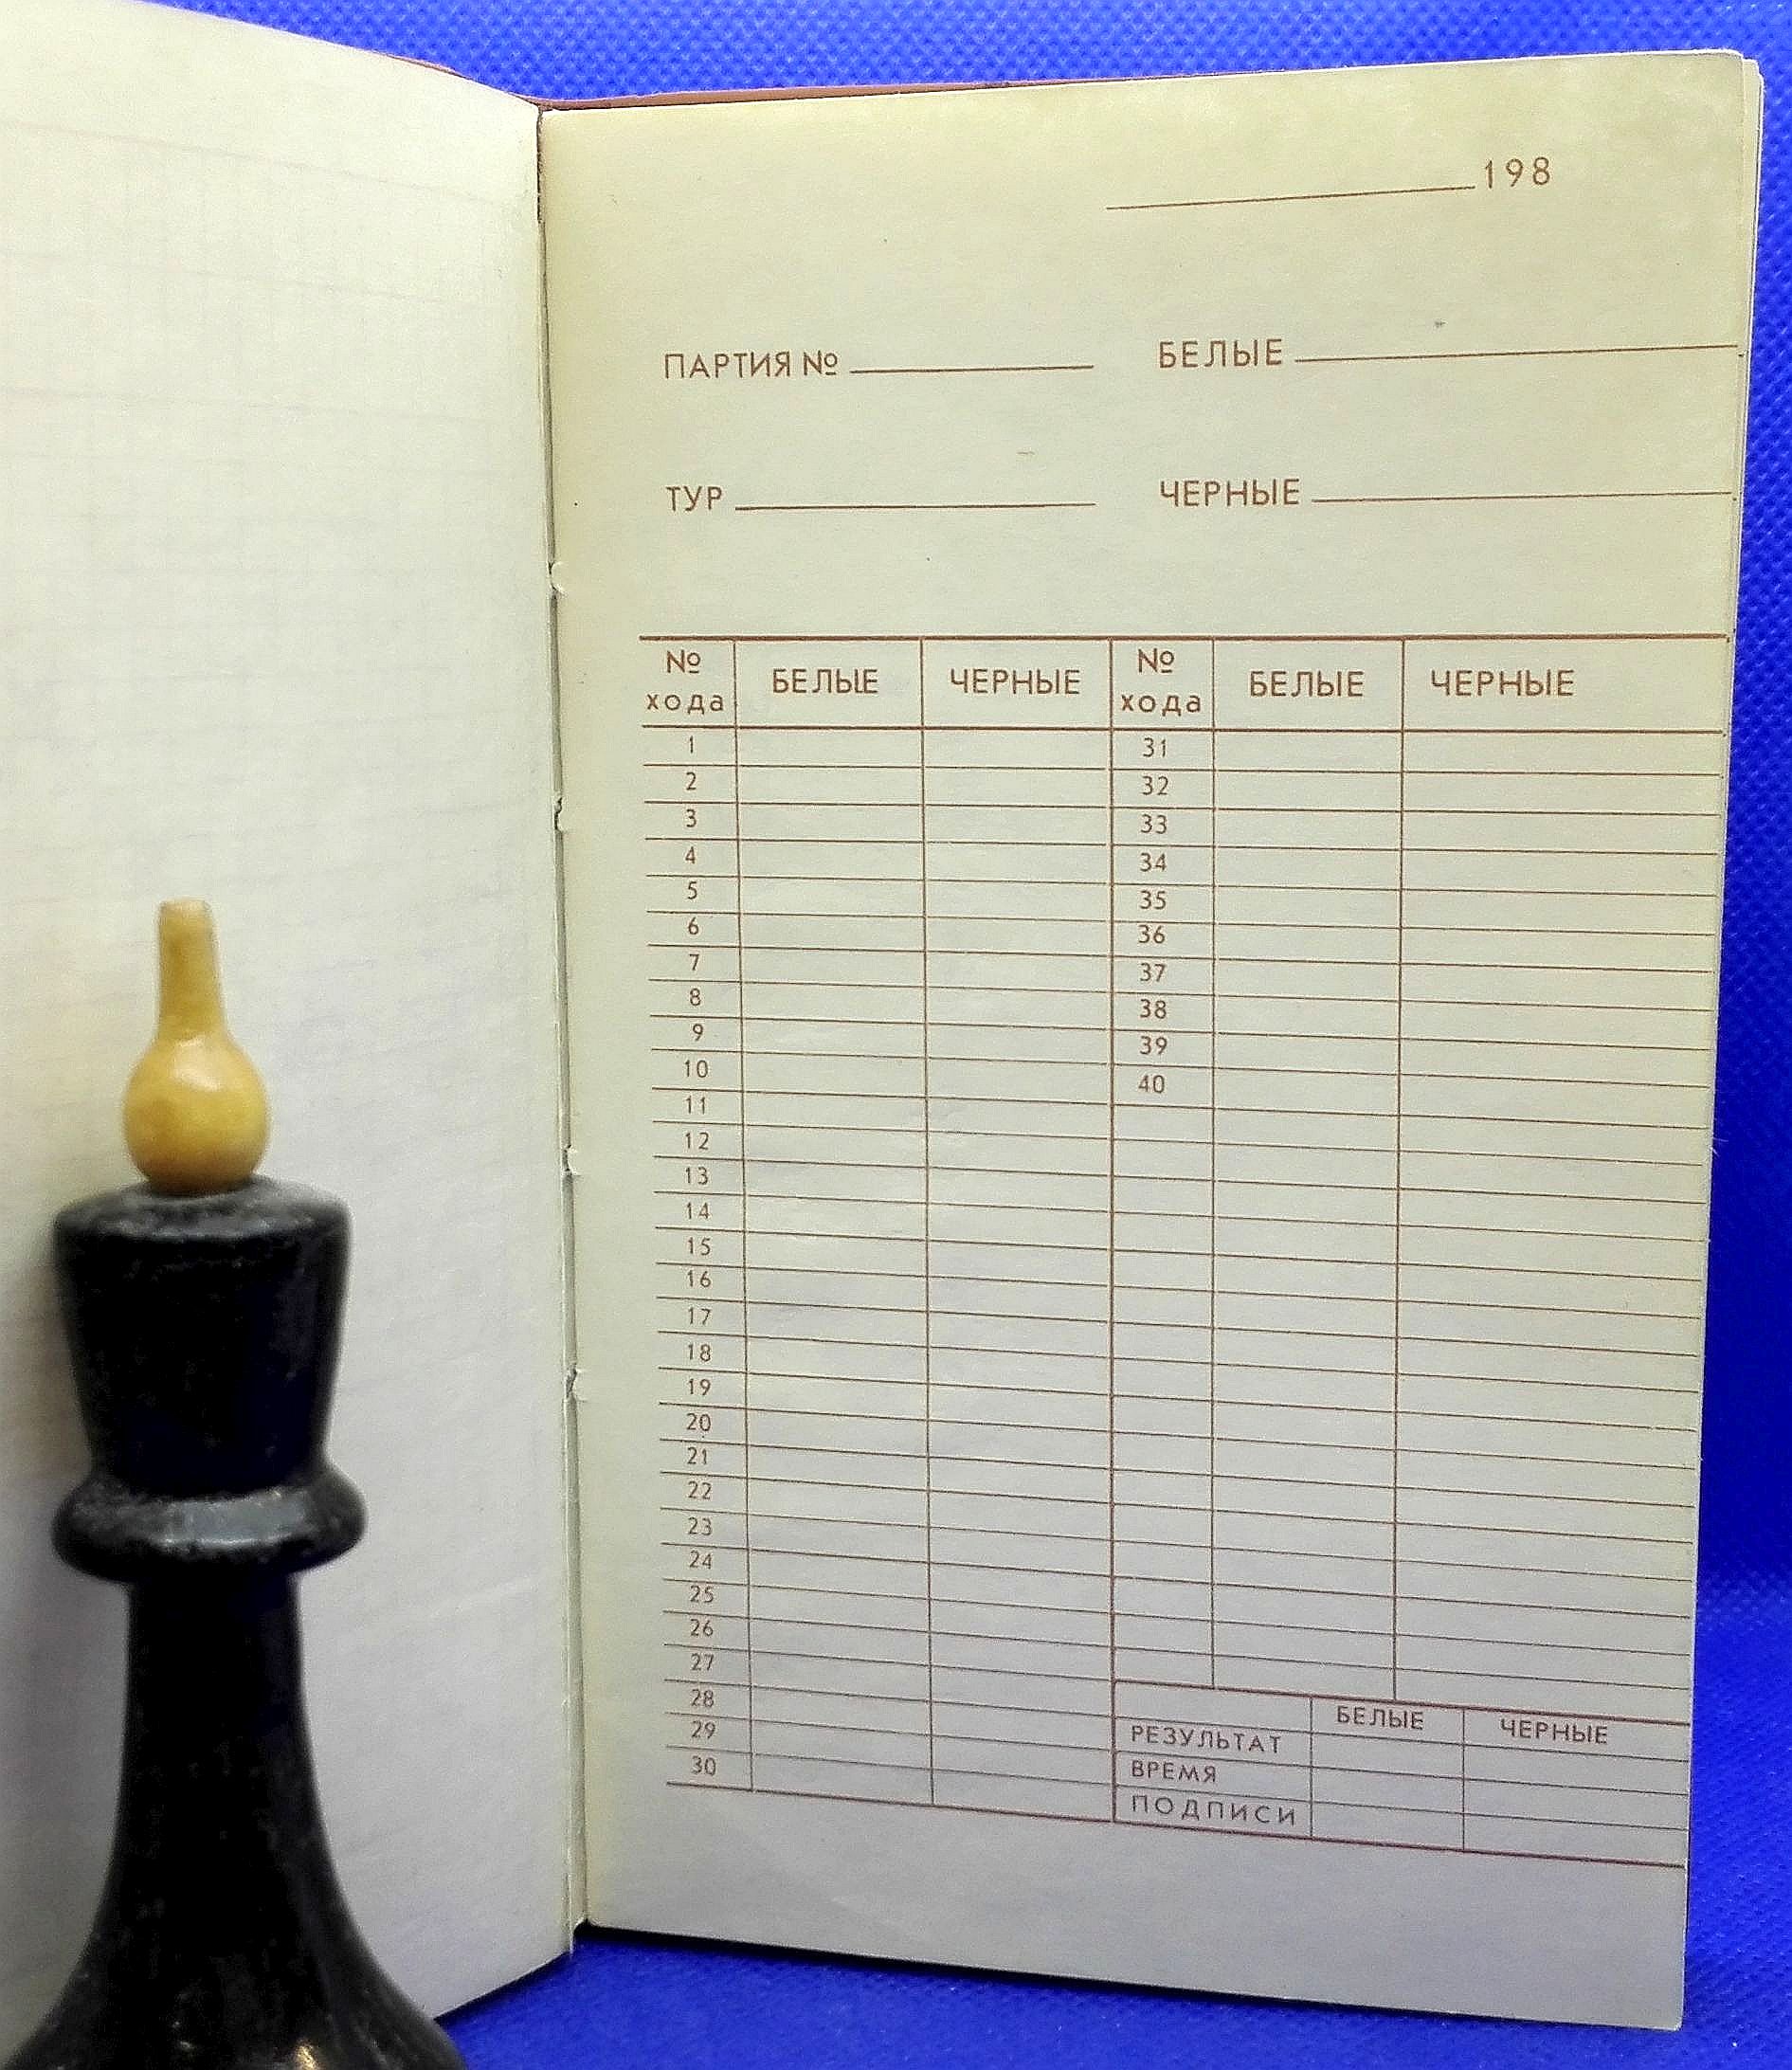 198
ПАРТИЯ № БЕЛЫЕ
ТУР ЧЕРНЫЕ
№ хода БЕЛЫЕ ЧЕРНЫЕ № хода БЕЛЫЕ ЧЕРНЫЕ
1 31
2 32
3 33
4 34
5 35
6 36
7 37
8 38
9 39
10 40
11
12
13
14
15
16
17
18
19
20
21
22
23
24
25
26
27
28
29
30
БЕЛЫЕ ЧЕРНЫЕ
РЕЗУЛЬТАТ
ВРЕМЯ
ПОДПИСИ